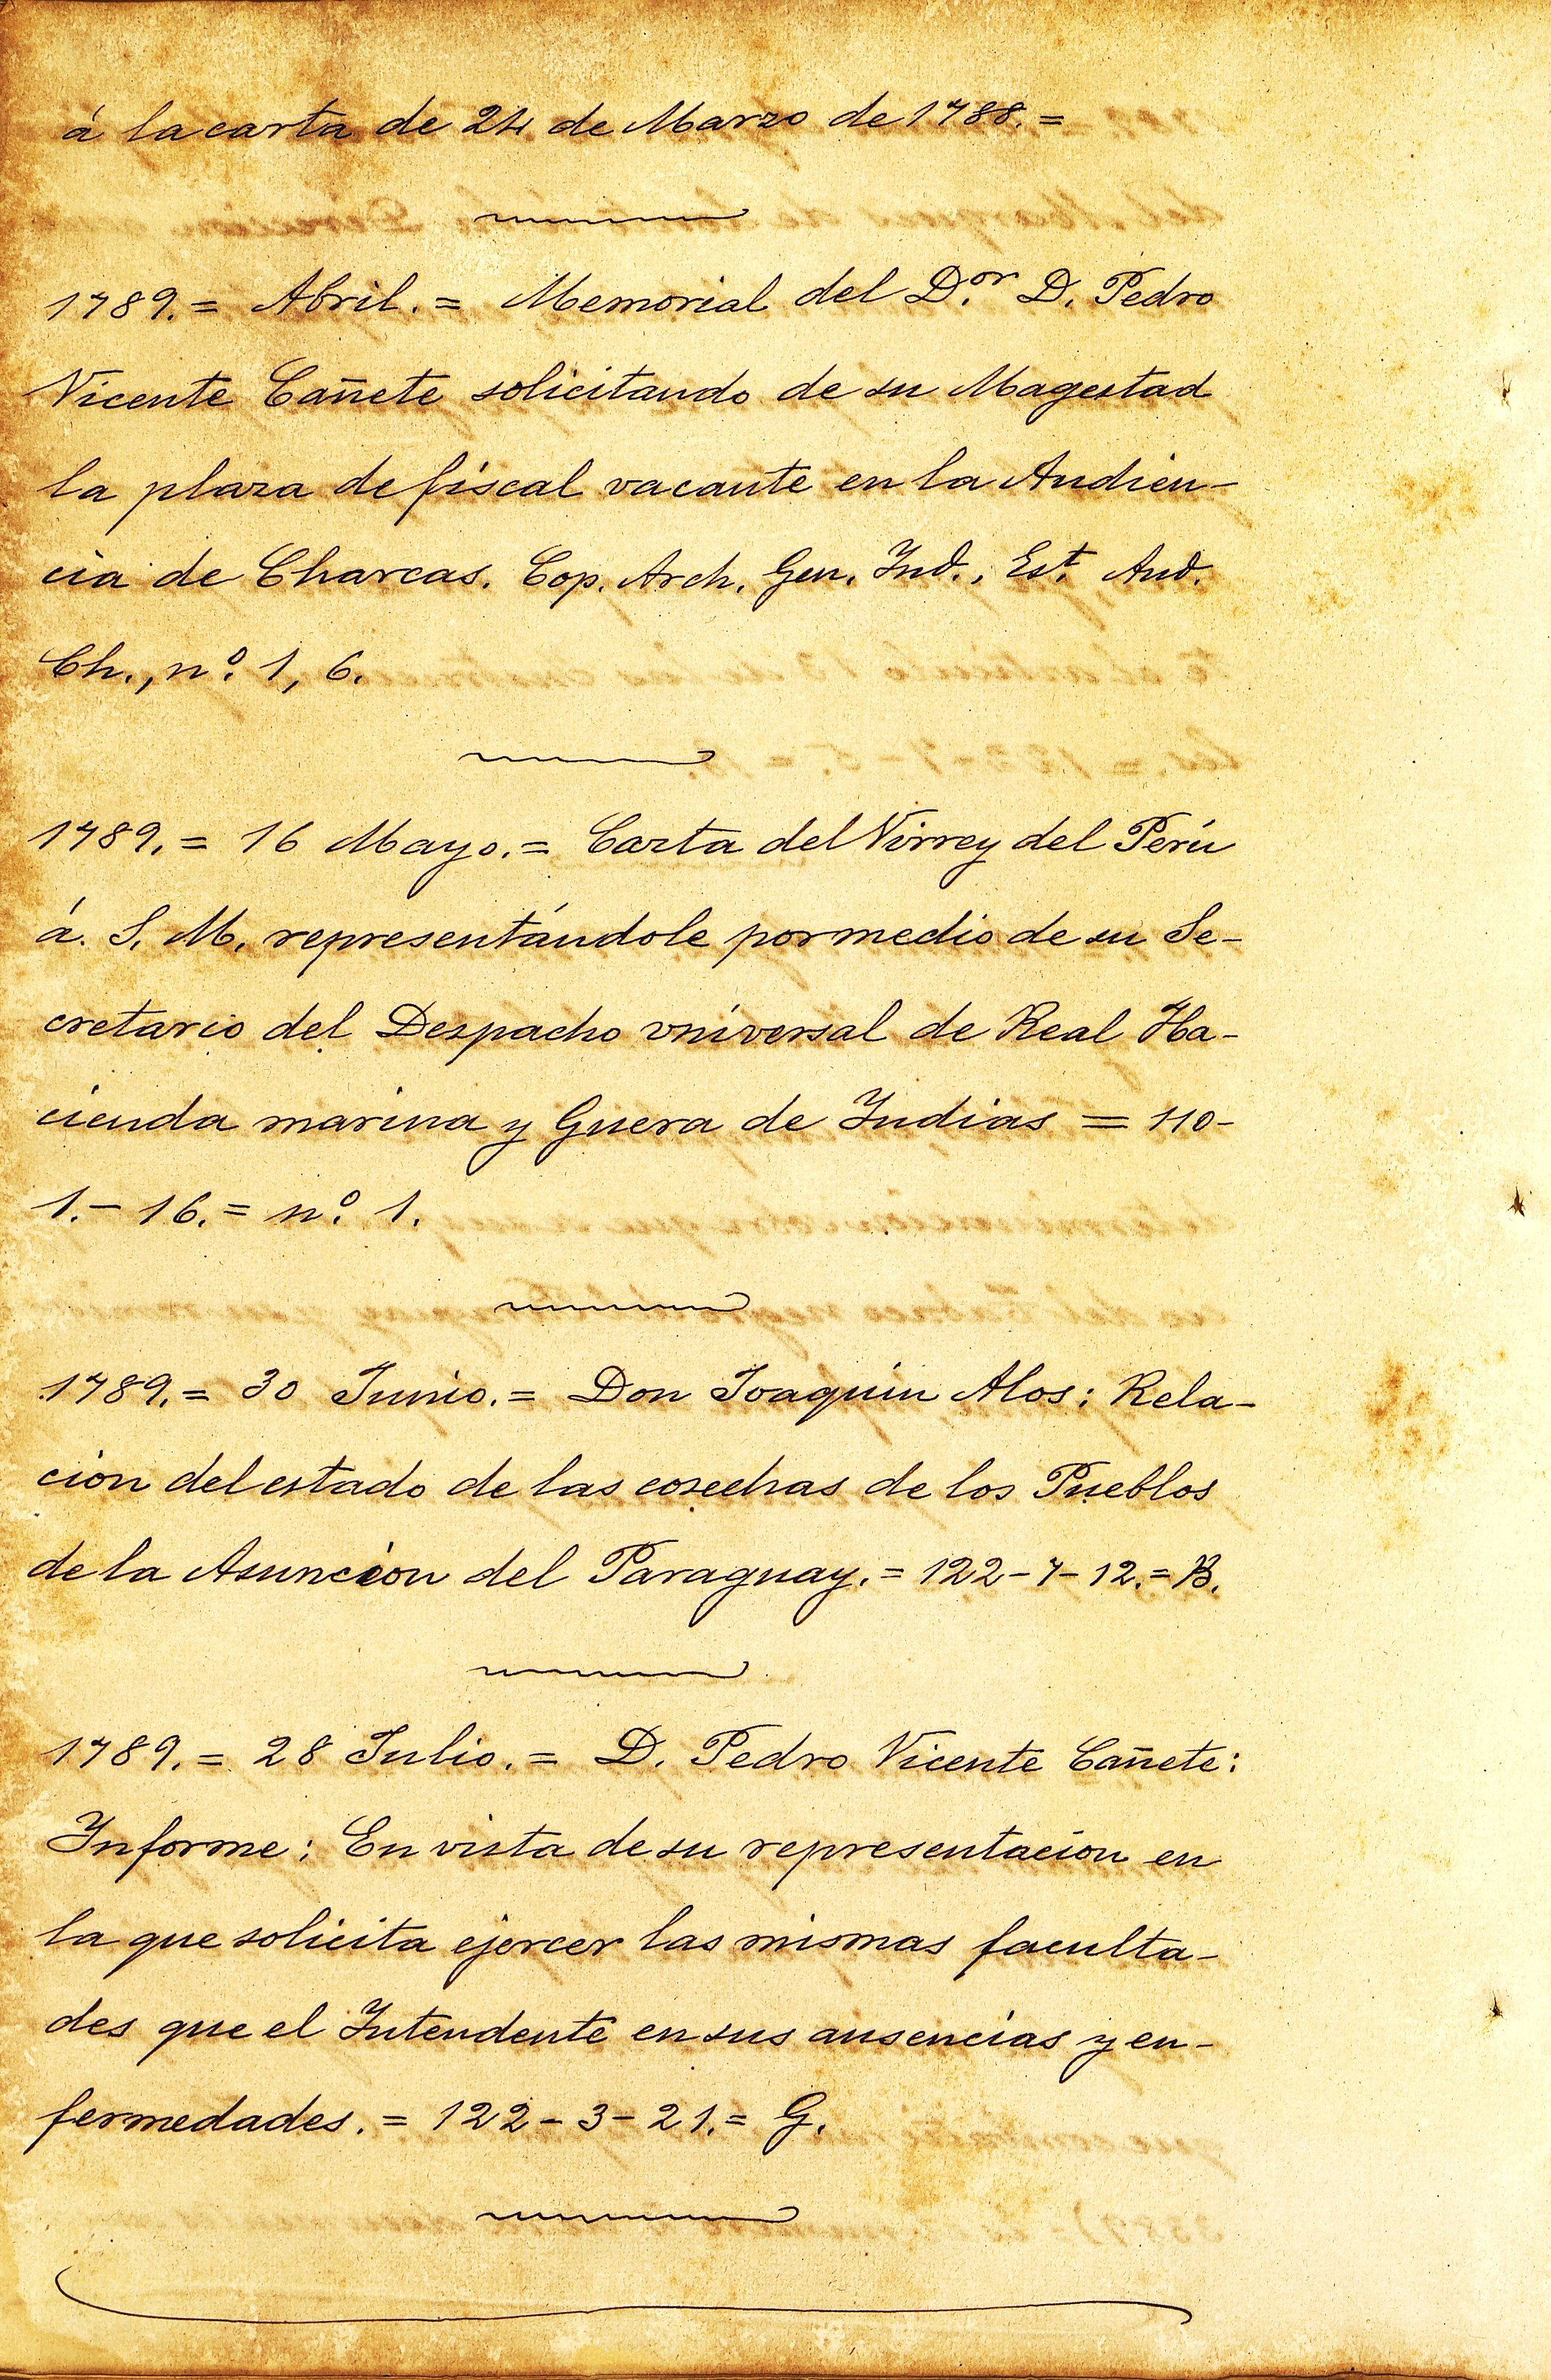 á la carta de 24 de Marzo de 1788. =
1789. = Abril. = Memorial del D.or D. Pedro
Vicente Cañete solicitando de su Magestad
la plaza de fiscal vacante en la Audien-
cia de Charcas. Cop. Arch. Gen. Ind., Est. Aud.
Ch., nº. 1, 6.
1789. = 16 Mayo. = Carta del Virrey del Perú
á. S. M. representándole por medio de su Se-
cretario del Despacho vniversal de Real Ha-
cienda marina y Guera de Indias = 110-
1. - 16. = nº. 1.
1789. = 30 Junio. = Don Joaquin Alos: Rela-
cion del estado de las cosechas de los Pueblos
de la Asuncion del Paraguay. = 122-7-12. = B.
1789. = 28 Julio. = D. Pedro Vicente Cañete:
Informe: En vista de su representacion en
la que solicita ejercer las mismas faculta-
des que el Intendente en sus ausencias y en-
fermedades. = 122-3-21. = G.